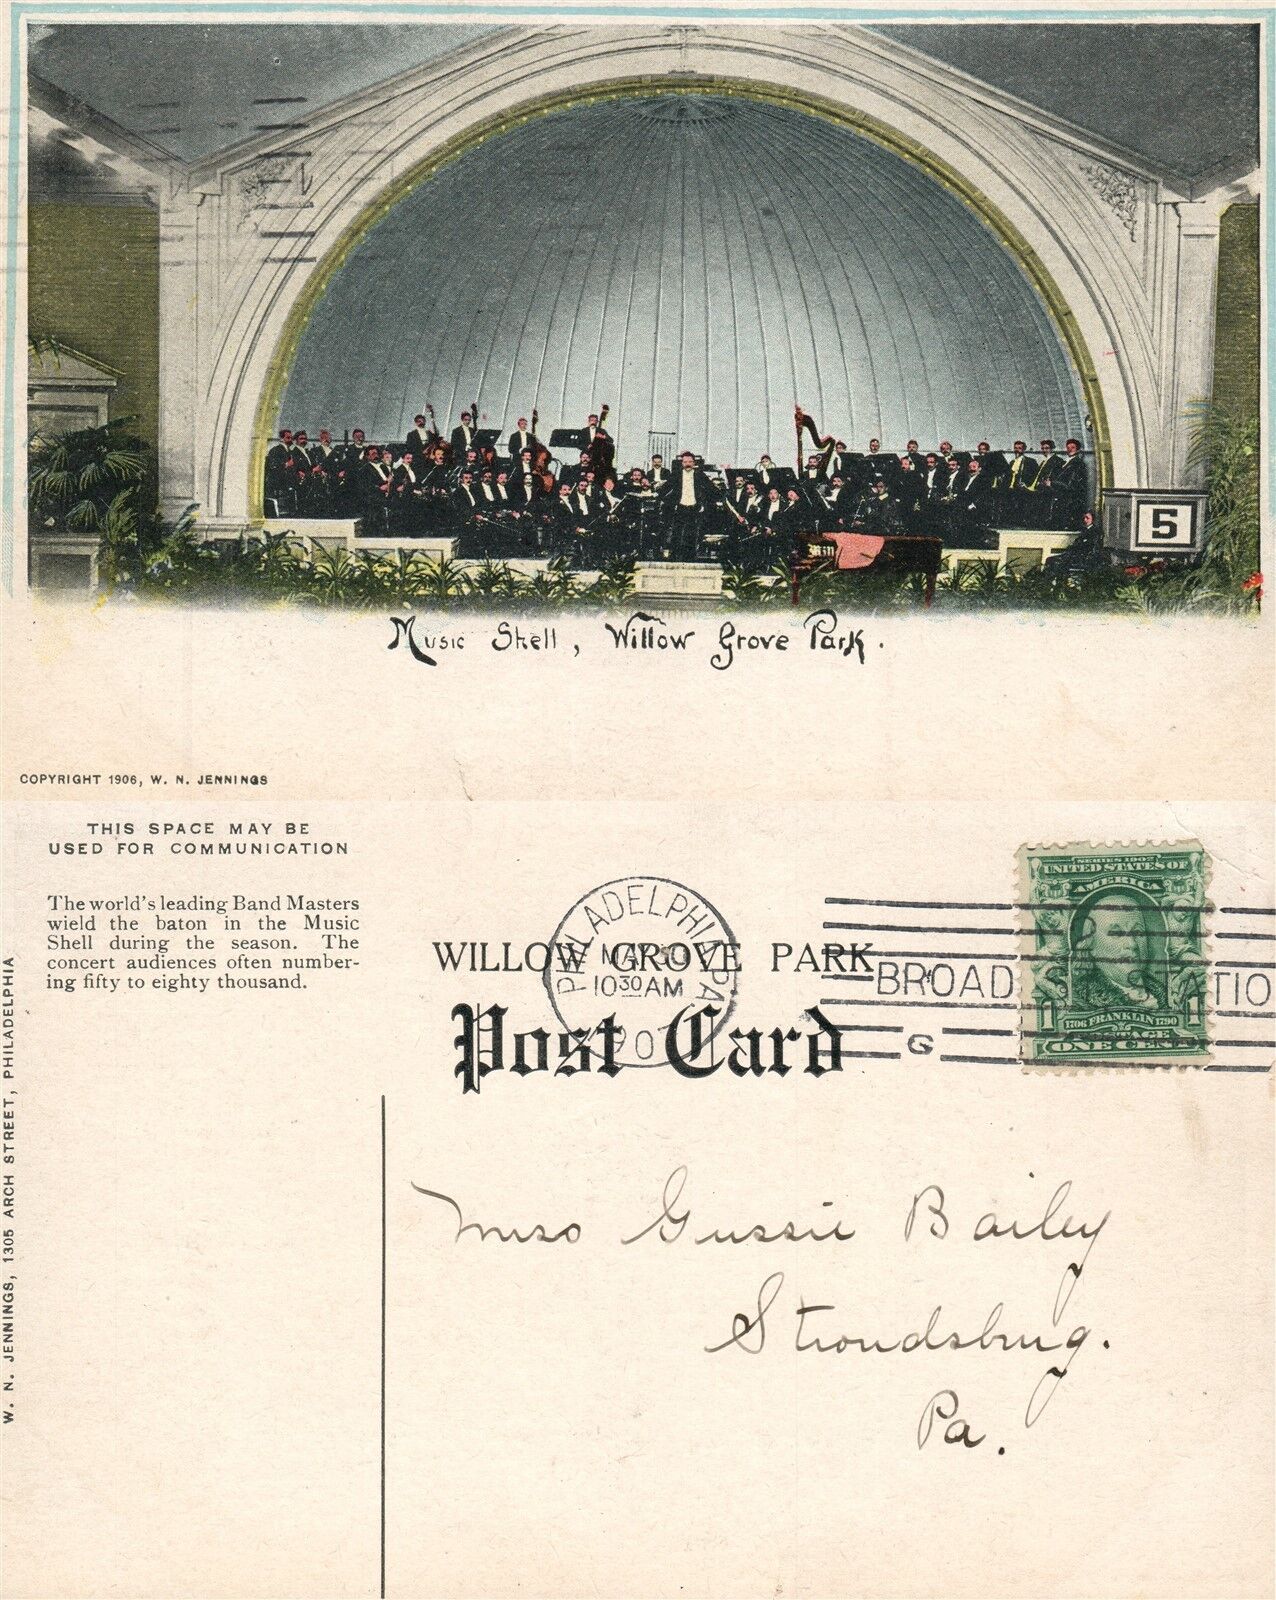 5
Music Shell, Willow Grove Park.
COPYRIGHT 1906, W. N. JENNINGS
THIS SPACE MAY BE
USED FOR COMMUNICATION
The world's leading Band Masters
wield the baton in the Music
Shell during the season. The
concert audiences often number-
ing fifty to eighty thousand.
W. N. JENNINGS, 1305 ARCH STREET, PHILADELPHIA
WILLOW GROVE PARK
Post Card
PHILADELPHIA, PA.
MAY
10 30 AM
BROAD ST. STATIO
G
SERIES 1902
UNITED STATES OF
AMERICA
1706 FRANKLIN 1790
1 1
POSTAGE
ONE CENT
Miss Gussie Bailey
Stroudsburg.
Pa.